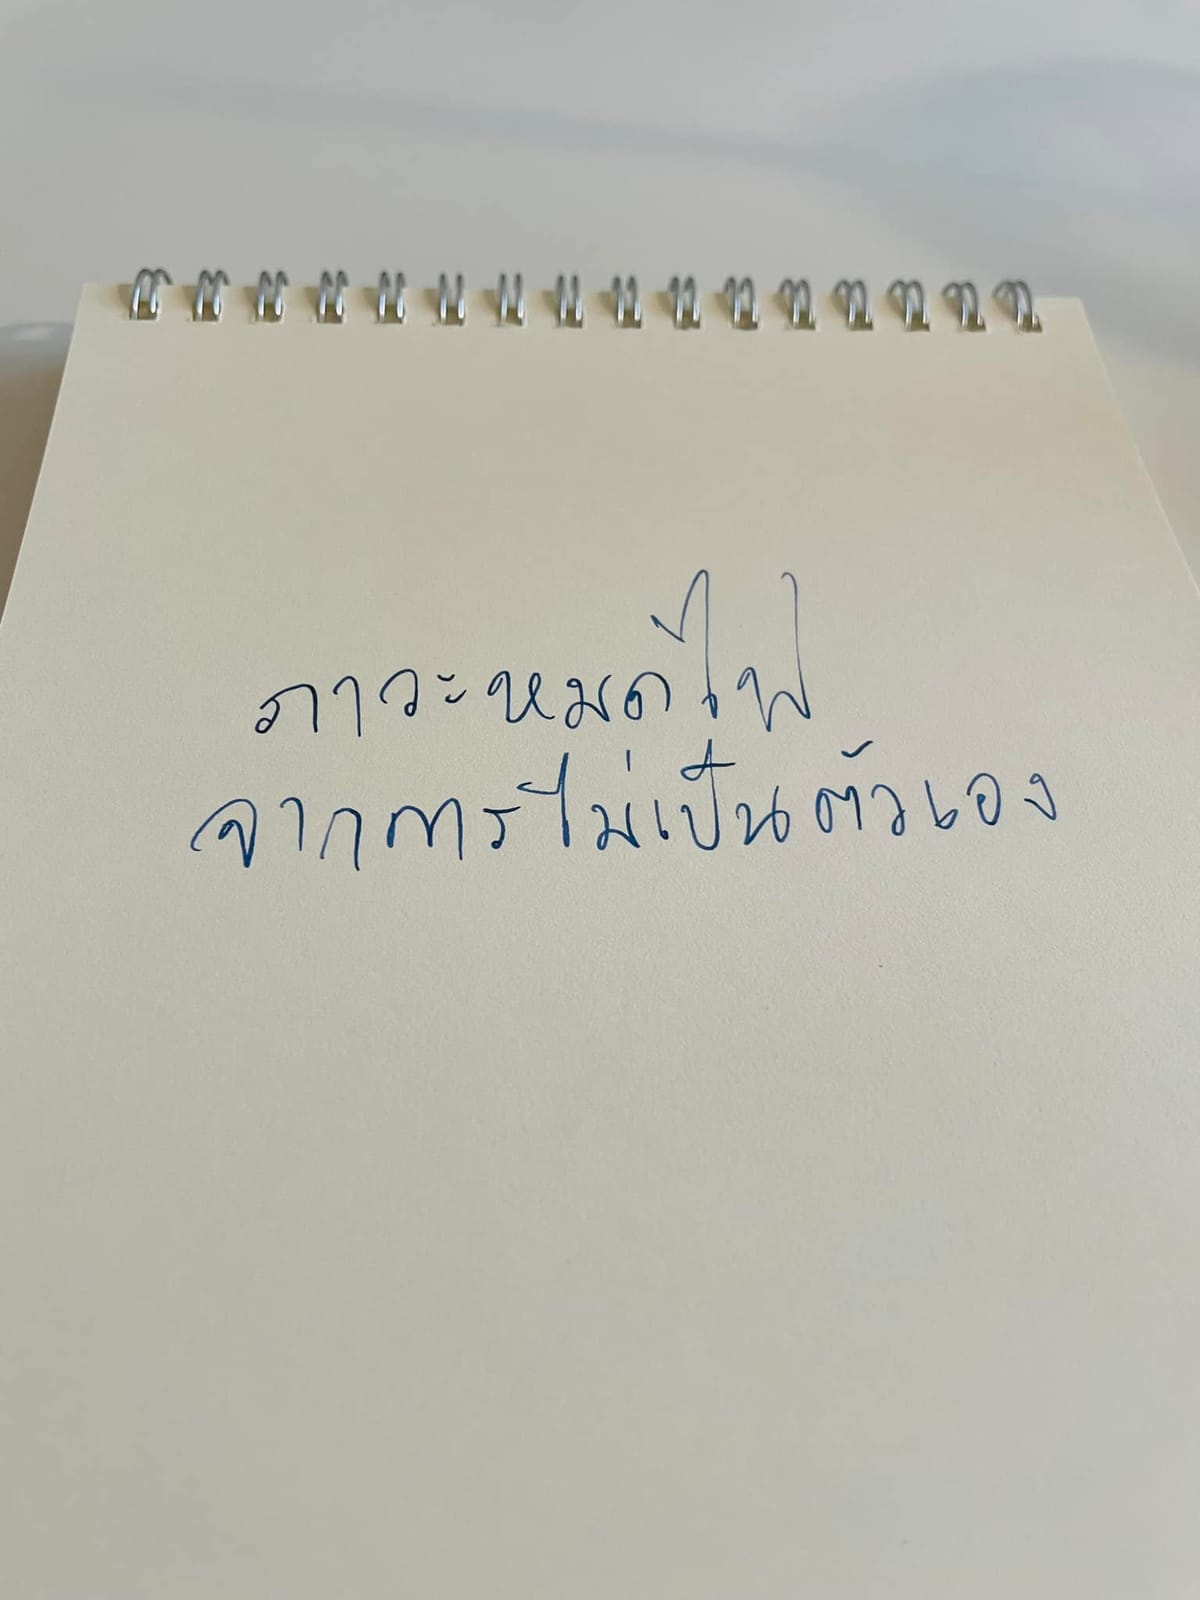 ภาวะหมดไฟ
จากการไม่เป็นตัวเอง